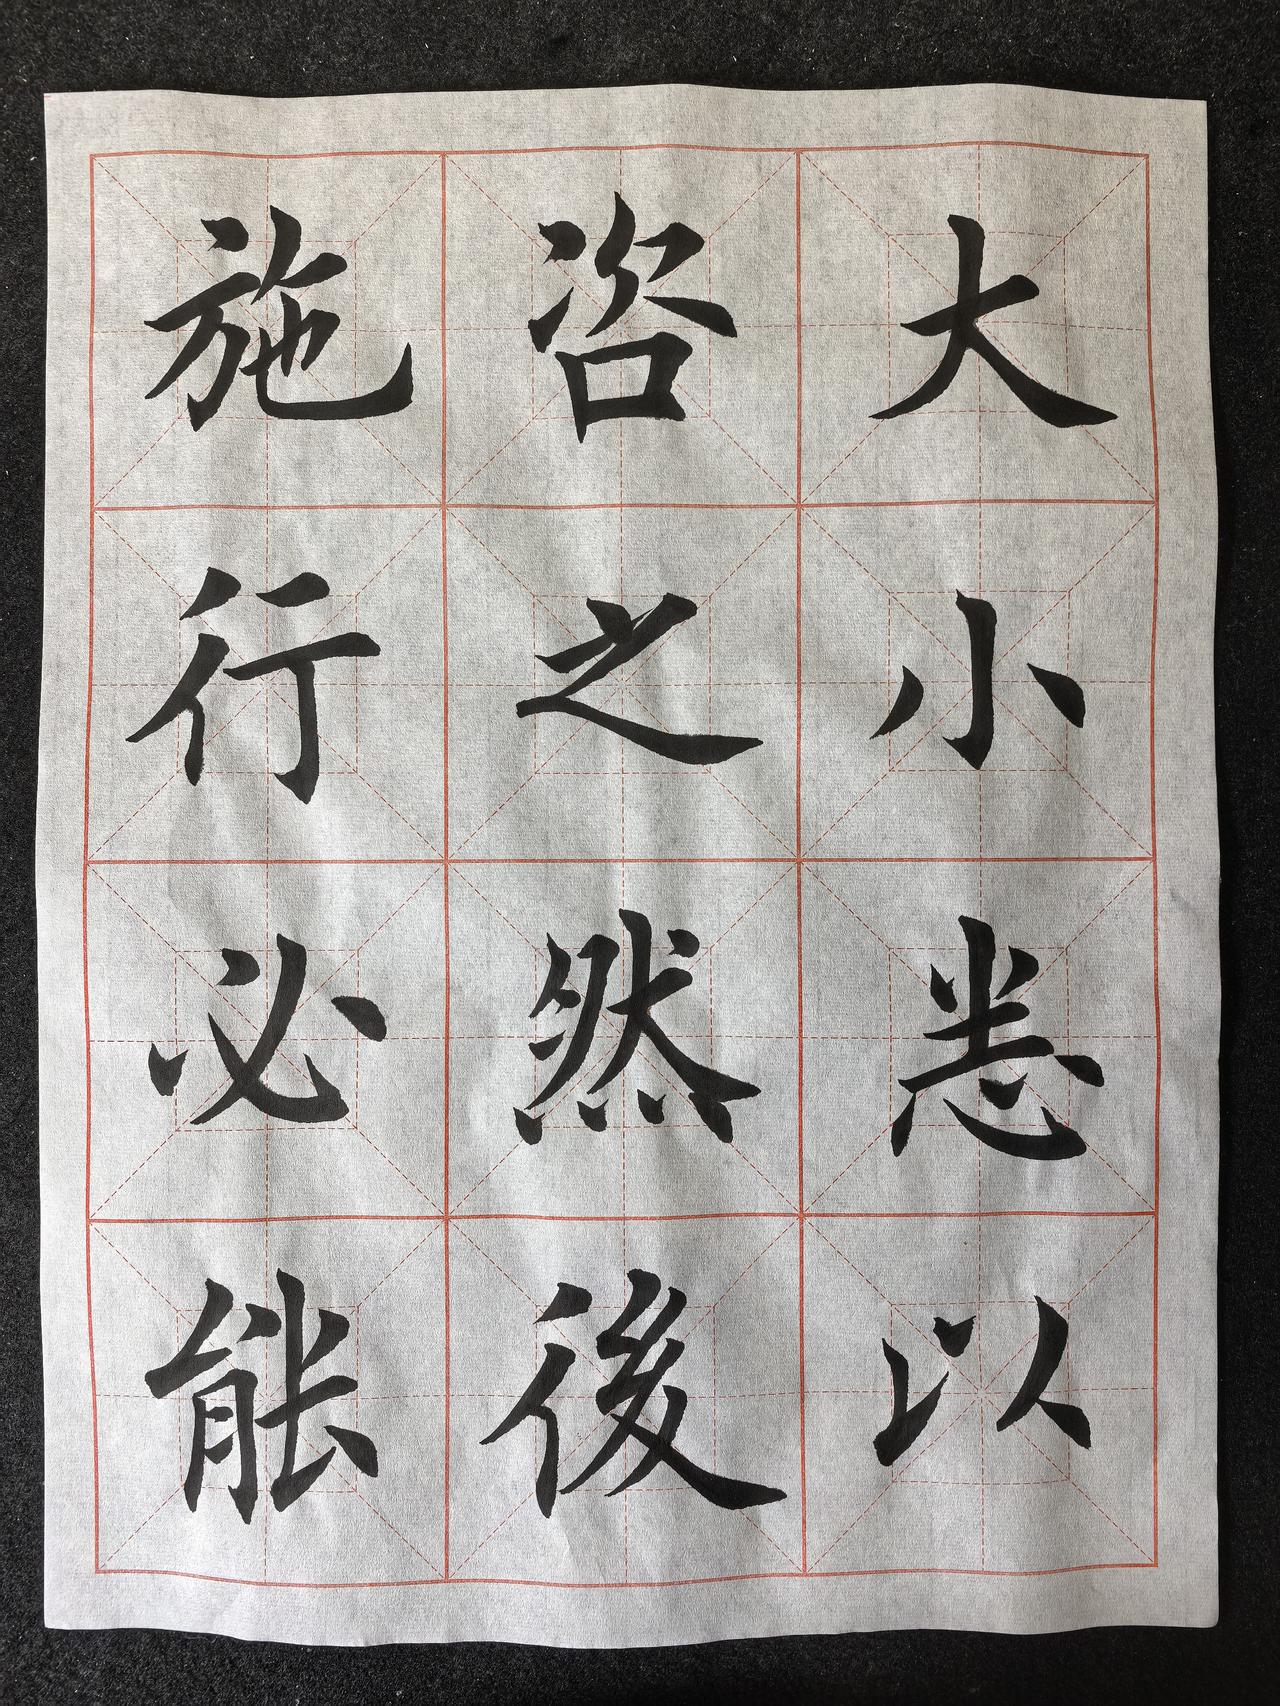 大小悉以
咨之然後
施行必能